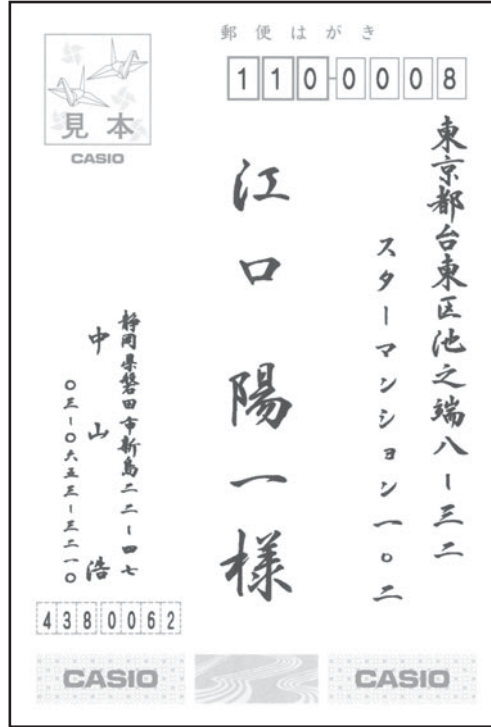 郵便はがき
110-0008
見本
CASIO
東京都台東区池之端八ー三二
スターマンション一〇二
江口 陽一様
静岡県磐田市新島二二ー四七
中山 浩
〇三ー〇六五三ー三二一〇
4380062
CASIO
CASIO